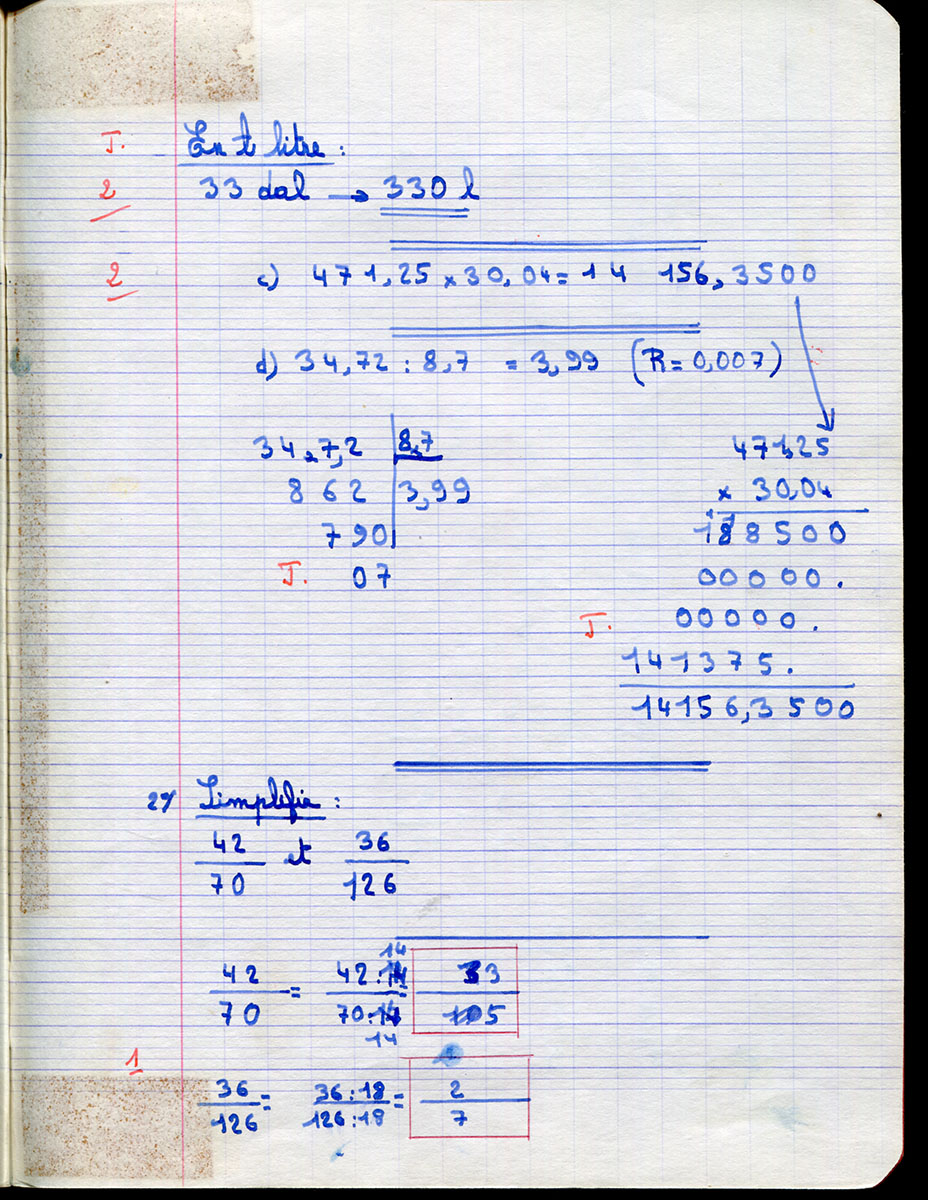 J. En t litre :
2 33 dal → 330 l
2 c) 471,25 x 30,04 = 14 156,3500
d) 34,72 : 8,7 = 3,99 (R = 0,007)
34,7,2 8,7
862 3,99
790
J. 07
471,25
x 30,04
188500
00000.
J. 00000.
141375.
14156,3500
2°/ Simplifie :
42/70 et 36/126
42/70 = 42:14/70:14 = 3/5
1
36/126 = 36:18/126:18 = 2/7